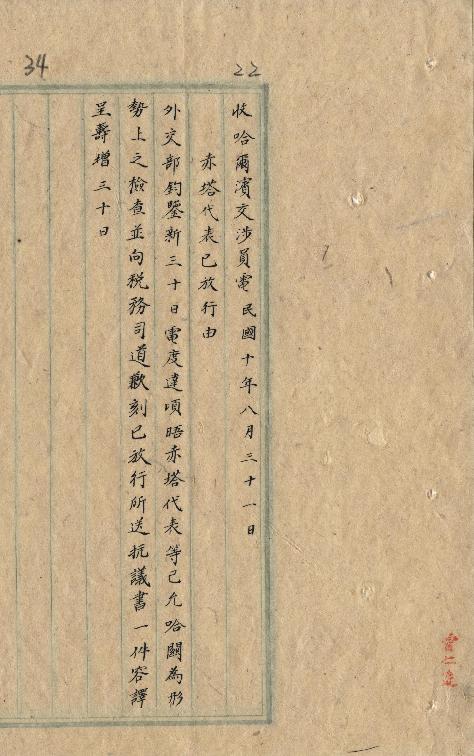 34
22
收哈爾濱交涉員電 民國十年八月三十一日
赤塔代表已放行由
外交部鈞鑒新三十日電度達頃晤赤塔代表等已允哈關為形
勢上之檢查並向稅務司道歉刻已放行所送抗議書一件容譯
呈壽增三十日